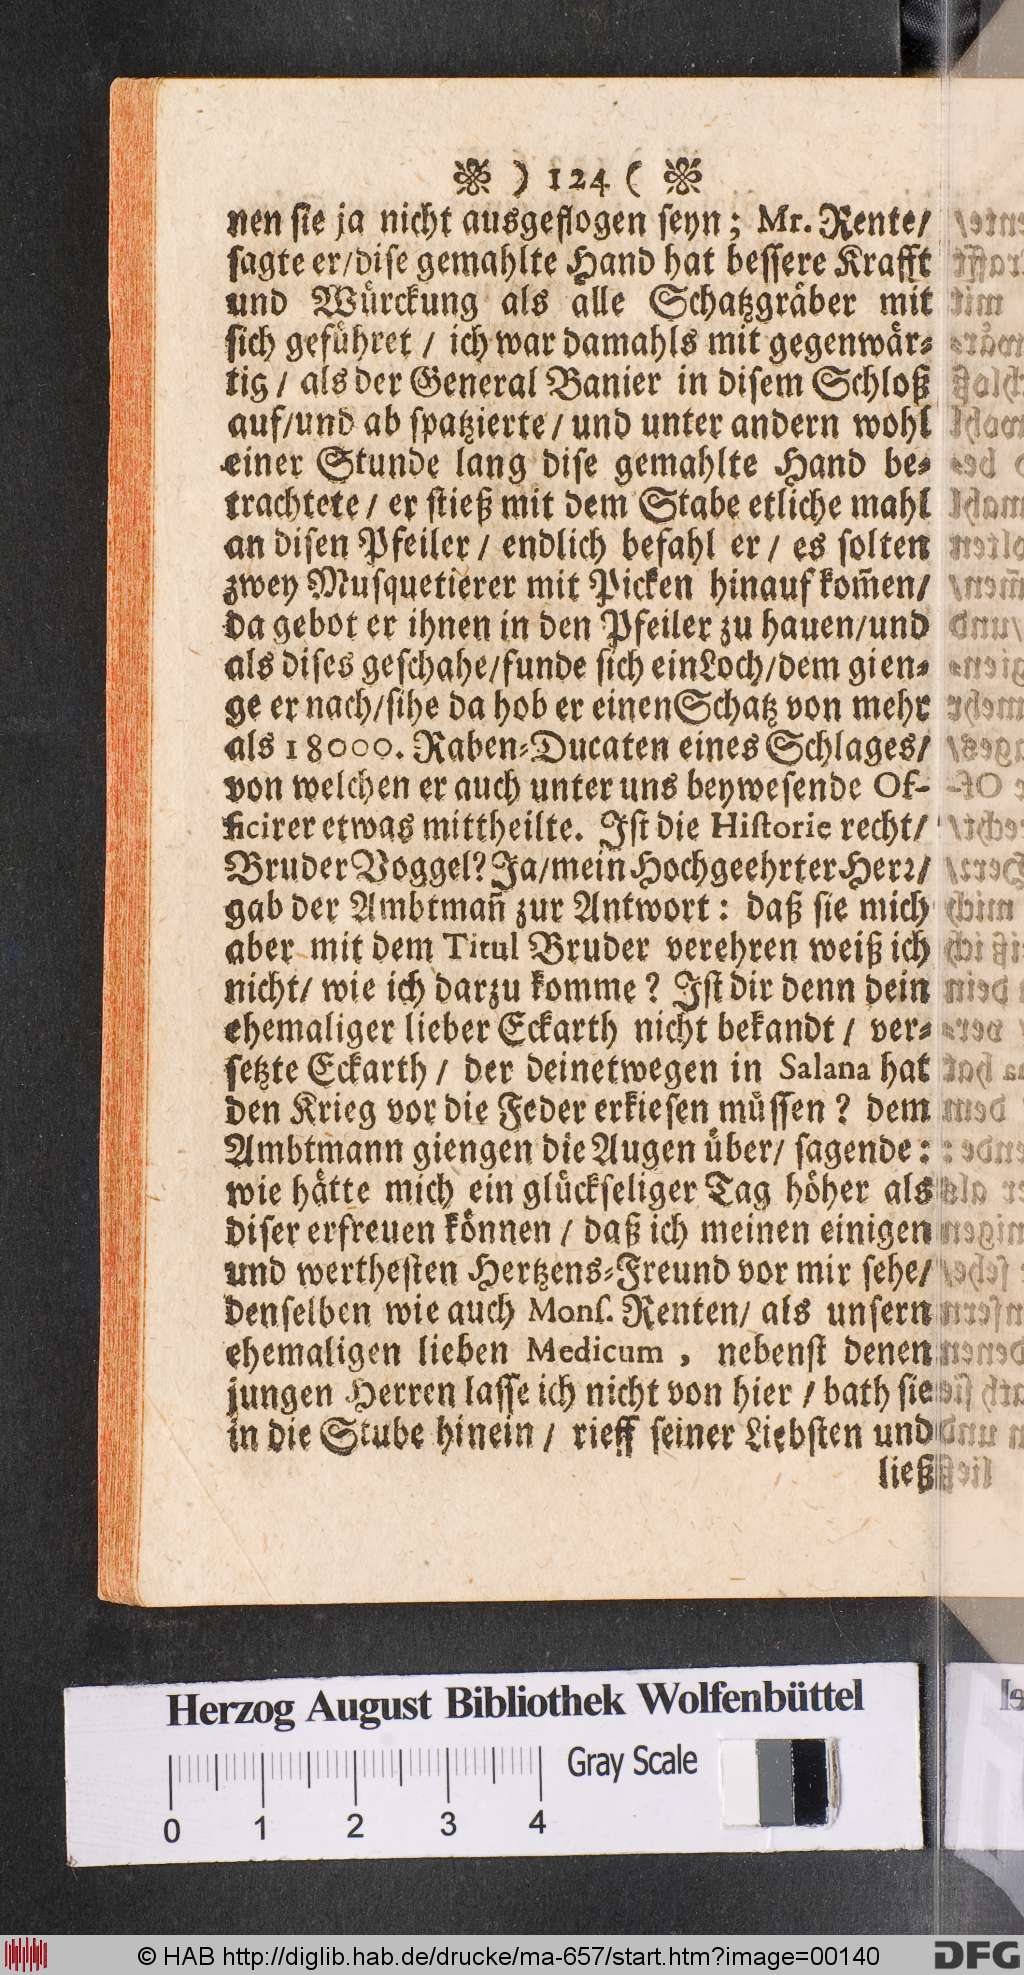 ) 124 (
nen sie ja nicht ausgeflogen seyn; Mr. Rente/
sagte er/dise gemahlte Hand hat bessere Krafft
und Würckung als alle Schatzgräber mit
sich geführet / ich war damahls mit gegenwär-
tig / als der General Banier in disem Schloß
auf/und ab spatzierte / und unter andern wohl
einer Stunde lang dise gemahlte Hand be-
trachtete / er stieß mit dem Stabe etliche mahl
an disen Pfeiler / endlich befahl er / es solten
zwey Musquetierer mit Picken hinauf kom̃en/
da gebot er ihnen in den Pfeiler zu hauen/und
als dises geschahe/funde sich ein Loch/dem gien-
ge er nach/sihe da hob er einen Schatz von mehr
als 18000. Raben-Ducaten eines Schlages/
von welchen er auch unter uns beywesende Of-
ficirer etwas mittheilte. Ist die Historie recht/
Bruder Voggel? Ja/mein Hochgeehrter Herr/
gab der Ambtman̄ zur Antwort: daß sie mich
aber mit dem Titul Bruder verehren weiß ich
nicht/ wie ich darzu komme? Ist dir denn dein
ehemaliger lieber Eckarth nicht bekandt / ver-
setzte Eckarth / der deinetwegen in Salana hat
den Krieg vor die Feder erkiesen müssen? dem
Ambtmann giengen die Augen über/ sagende:
wie hätte mich ein glückseliger Tag höher als
diser erfreuen können / daß ich meinen einigen
und werthesten Hertzens-Freund vor mir sehe/
denselben wie auch Mons. Renten/ als unsern
ehemaligen lieben Medicum, nebenst denen
jungen Herren lasse ich nicht von hier / bath sie
in die Stube hinein / rieff seiner Liebsten und
ließ
Herzog August Bibliothek Wolfenbüttel
Gray Scale
0 1 2 3 4
© HAB http://diglib.hab.de/drucke/ma-657/start.htm?image=00140
DFG